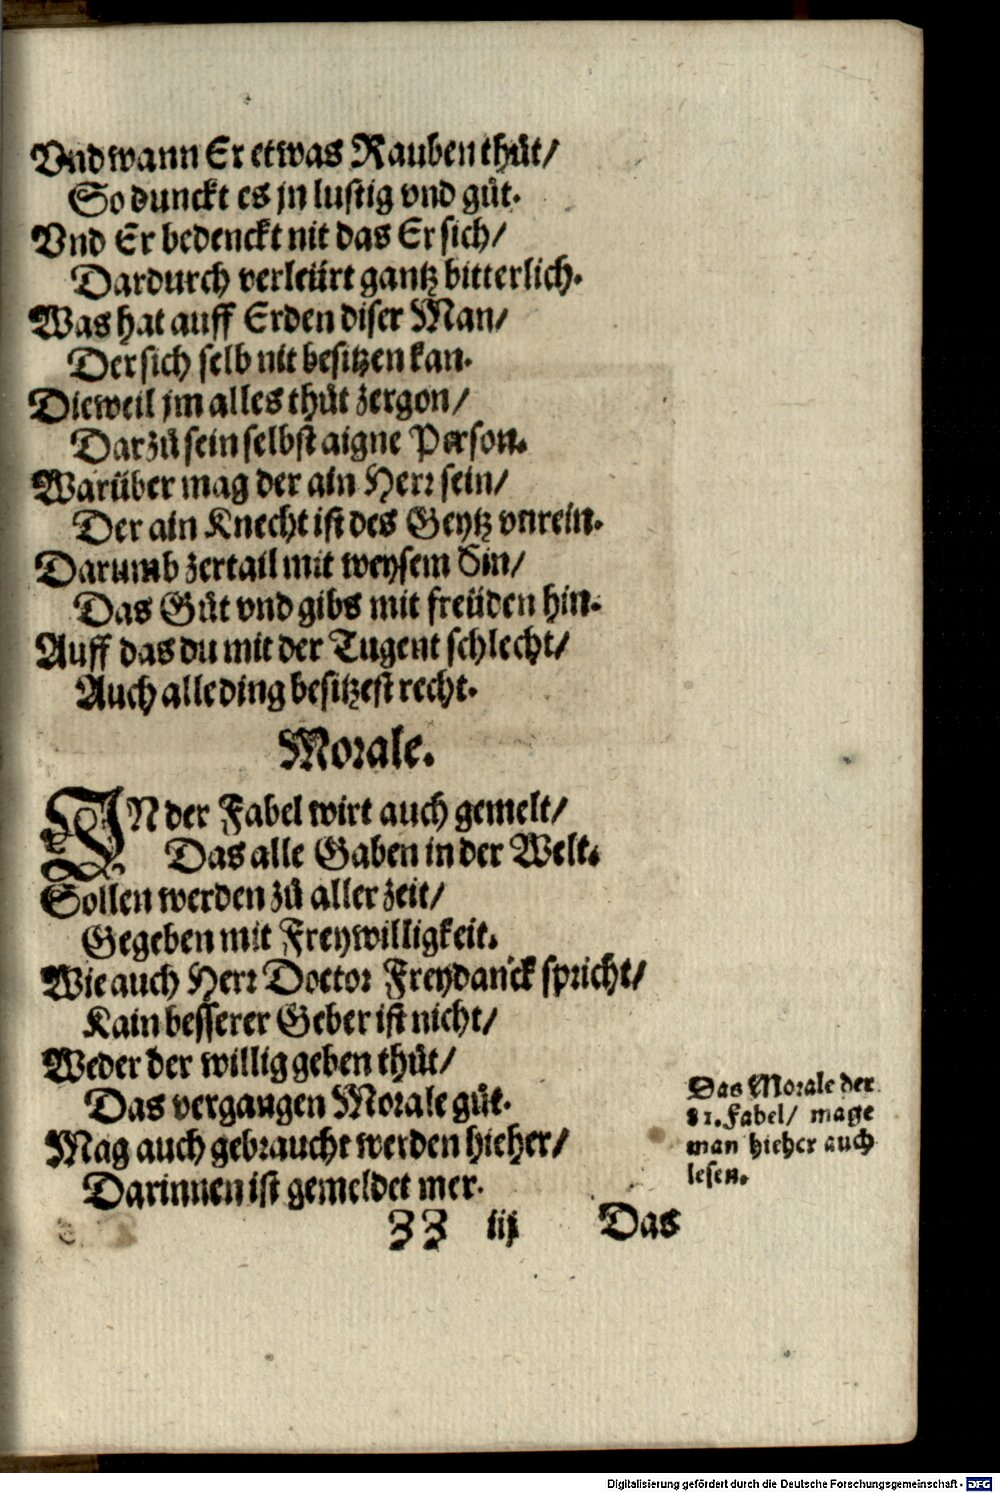 Vnd wann Er etwas Rauben thůt/
So dunckt es jn lustig vnd gůt.
Vnd Er bedenckt nit das Er sich/
Dardurch verleürt gantz bitterlich.
Was hat auff Erden diser Man/
Der sich selb nit besitzen kan.
Dieweil jm alles thůt zergon/
Darzů sein selbst aigne Person.
Warüber mag der ain Herr sein/
Der ain Knecht ist des Geytz vnrein.
Darumb zertail mit weysem Sin/
Das Gůt vnd gibs mit freüden hin.
Auff das du mit der Tugent schlecht/
Auch alle ding besitzest recht.
Morale.
IN der Fabel wirt auch gemelt/
Das alle Gaben in der Welt.
Sollen werden zů aller zeit/
Gegeben mit Freywilligkeit.
Wie auch Herr Doctor Freydanck spricht/
Kain besserer Geber ist nicht/
Weder der willig geben thůt/
Das vergangen Morale gůt.
Mag auch gebraucht werden hieher/
Darinnen ist gemeldet mer.
Das Morale der
81. Fabel/ mage
man hieher auch
lesen.
ZZ iij Das
Digitalisierung gefördert durch die Deutsche Forschungsgemeinschaft - DFG